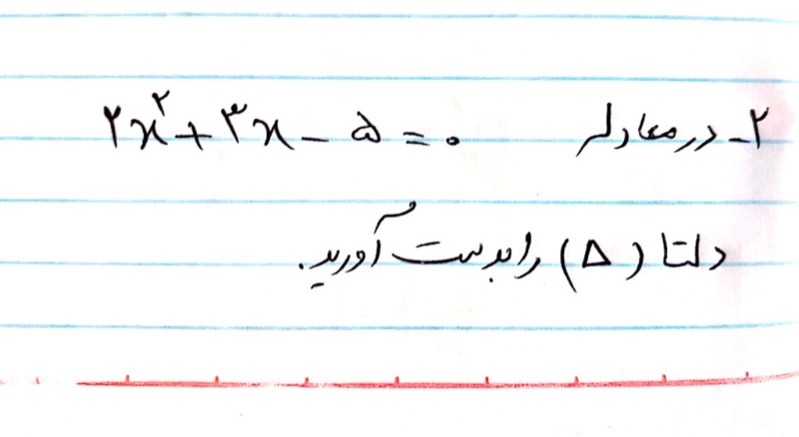 ۲- در معادله ۲x²+۳x-۵=۰
دلتا (Δ) را بدست آورید.